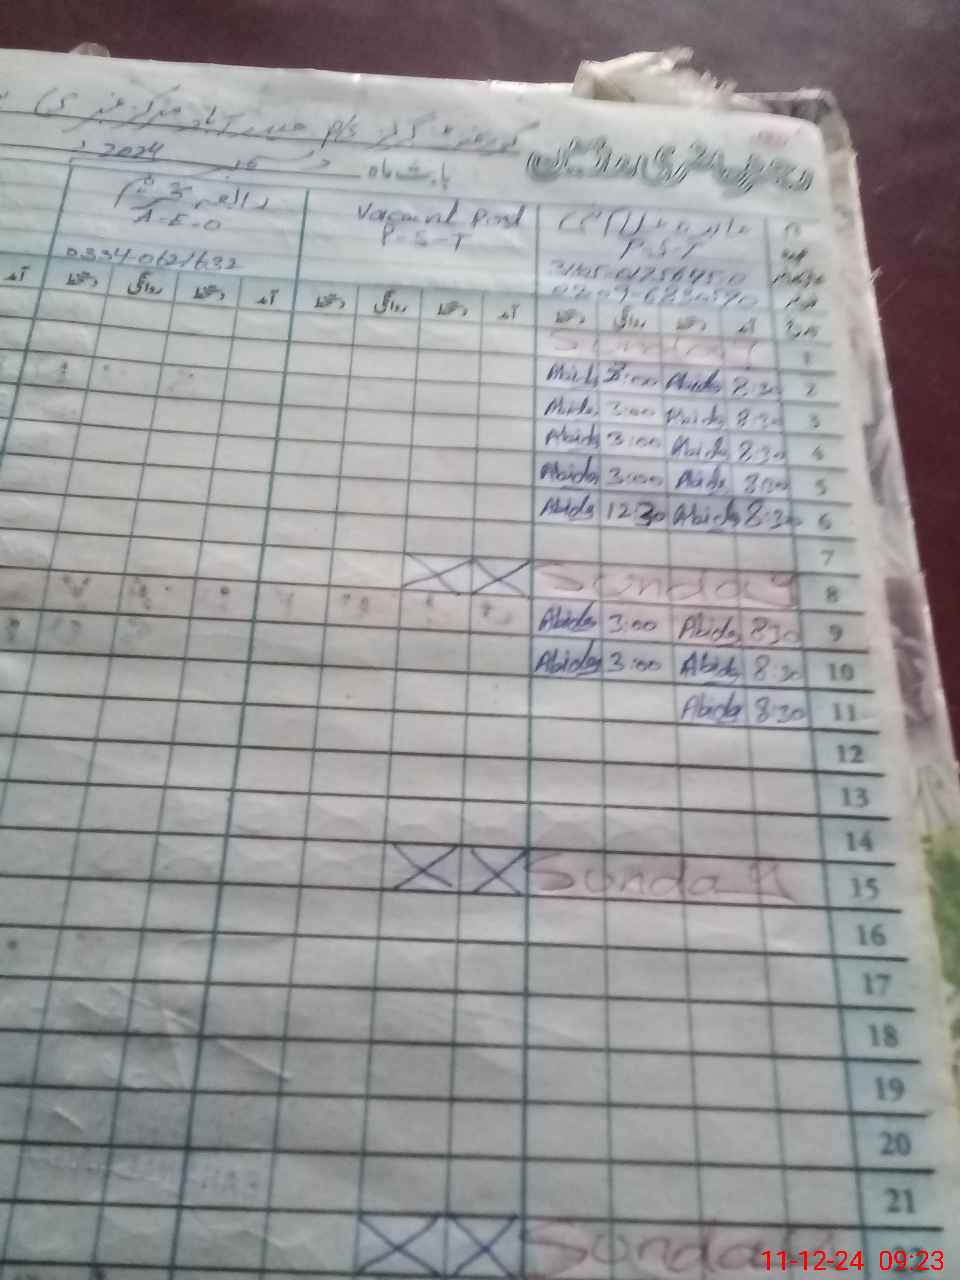 رجسٹر حاضری مدرسین
گورنمنٹ گرلز P/S حیدرآباد
بابت ماہ دسمبر 2024
نام
P-S-T
Vacaunt Post
P-S-T
A-E-O
عہدہ
0334-0621632
تاریخ آمد دستخط روانگی دستخط آمد دستخط روانگی دستخط آمد دستخط روانگی دستخط آمد
1 Sunday
2 8:30 Abida 3:00 Abida
3 8:30 Abida 3:00 Abida
4 8:30 Abida 3:00 Abida
5 Abida 3:00 Abida
6 8:30 Abida 12:30 Abida
7
8 Sunday
9 8:30 Abida 3:00 Abida
10 8:30 Abida 3:00 Abida
11 8:30 Abida
12
13
14
15 Sunday
16
17
18
19
20
21
Sunday
11-12-24 09:23